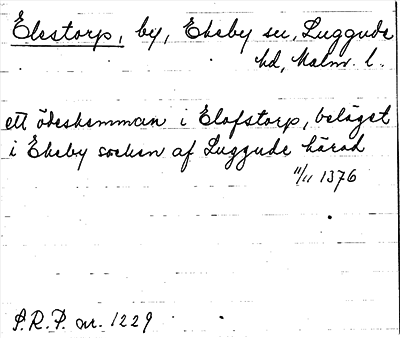 Elestorp, by, Ekeby sn, Luggude
hd, Malm. l.
ett ödeshemman i Elofstorp, beläget
i Ekeby socken af Luggude härad
11/11 1376
S.R.P. nr. 1229